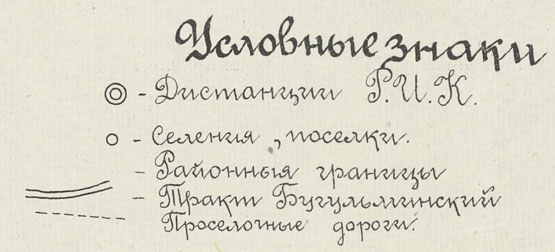 Условные знаки
- Дистанции Р.И.К.
- Селения, поселки.
- Районныя границы
- Тракт Бугульминский
Проселочные дороги.